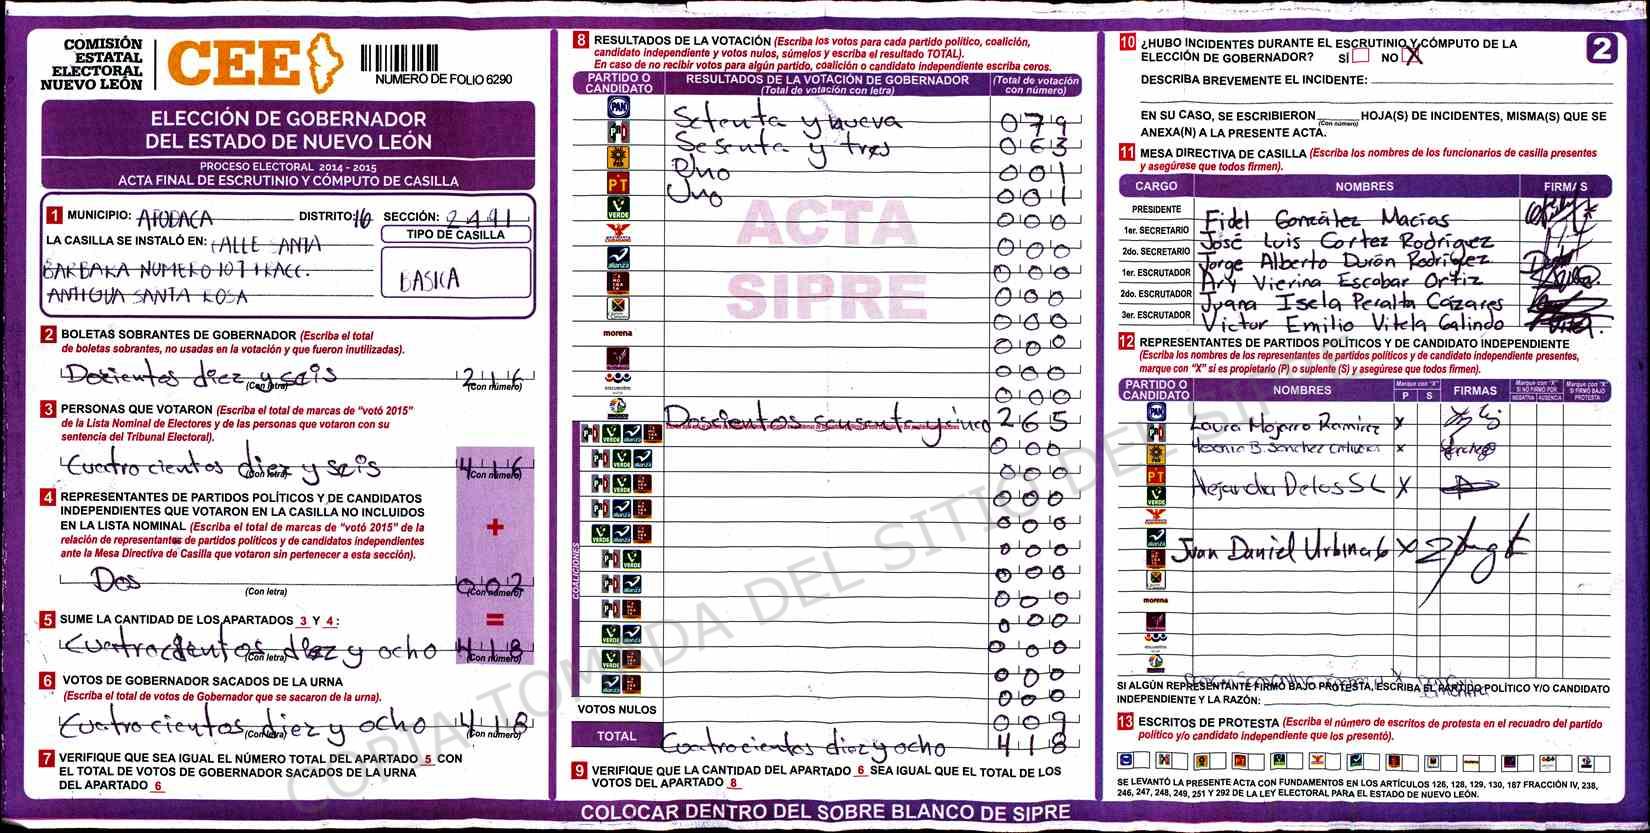 COMISIÓN
ESTATAL
ELECTORAL
NUEVO LEÓN
CEE
NUMERO DE FOLIO 6290
ELECCIÓN DE GOBERNADOR
DEL ESTADO DE NUEVO LEÓN
PROCESO ELECTORAL 2014 - 2015
ACTA FINAL DE ESCRUTINIO Y CÓMPUTO DE CASILLA
1 MUNICIPIO: APODACA DISTRITO: 16 SECCIÓN: 2491
LA CASILLA SE INSTALÓ EN: CALLE SANTA
BARBARA NUMERO 107 FRACC.
ANTIGUA SANTA ROSA
TIPO DE CASILLA
BASICA
2 BOLETAS SOBRANTES DE GOBERNADOR (Escriba el total
de boletas sobrantes, no usadas en la votación y que fueron inutilizadas).
Docientos diez y seis 216
(Con letra) (Con número)
3 PERSONAS QUE VOTARON (Escriba el total de marcas de "votó 2015"
de la Lista Nominal de Electores y de las personas que votaron con su
sentencia del Tribunal Electoral).
Cuatro cientos diez y seis 416
(Con letra) (Con número)
4 REPRESENTANTES DE PARTIDOS POLÍTICOS Y DE CANDIDATOS
INDEPENDIENTES QUE VOTARON EN LA CASILLA NO INCLUIDOS
EN LA LISTA NOMINAL (Escriba el total de marcas de "votó 2015" de la
relación de representantes de partidos políticos y de candidatos independientes
ante la Mesa Directiva de Casilla que votaron sin pertenecer a esta sección).
+
Dos 002
(Con letra) (Con número)
5 SUME LA CANTIDAD DE LOS APARTADOS 3 Y 4: =
Cuatrocientos diez y ocho 418
(Con letra) (Con número)
6 VOTOS DE GOBERNADOR SACADOS DE LA URNA
(Escriba el total de votos de Gobernador que se sacaron de la urna).
Cuatro cientos diez y ocho 418
(Con letra) (Con número)
7 VERIFIQUE QUE SEA IGUAL EL NÚMERO TOTAL DEL APARTADO 5 CON
EL TOTAL DE VOTOS DE GOBERNADOR SACADOS DE LA URNA
DEL APARTADO 6
8 RESULTADOS DE LA VOTACIÓN (Escriba los votos para cada partido político, coalición,
candidato independiente y votos nulos, súmelos y escriba el resultado TOTAL).
En caso de no recibir votos para algún partido, coalición o candidato independiente escriba ceros.
PARTIDO O CANDIDATO RESULTADOS DE LA VOTACIÓN DE GOBERNADOR (Total de votación con letra) (Total de votación con número)
PAN Setenta y nueva 079
PRI Sesenta y tres 063
PRD Uno 001
PT Uno 001
VERDE 000
000
alianza 000
000
000
morena 000
000
encuentro 000
Doscientos sesenta y cinco 265
VERDE alianza 000
VERDE alianza 000
VERDE 000
alianza 000
VERDE alianza 000
VERDE 000
alianza 000
000
VERDE alianza 000
VERDE 000
alianza 000
COALICIONES
VOTOS NULOS 009
TOTAL Cuatrocientos diez y ocho 418
ACTA
SIPRE
9 VERIFIQUE QUE LA CANTIDAD DEL APARTADO 6 SEA IGUAL QUE EL TOTAL DE LOS
VOTOS DEL APARTADO 8
COLOCAR DENTRO DEL SOBRE BLANCO DE SIPRE
2
10 ¿HUBO INCIDENTES DURANTE EL ESCRUTINIO Y CÓMPUTO DE LA
ELECCIÓN DE GOBERNADOR? SÍ NO X
DESCRIBA BREVEMENTE EL INCIDENTE:
EN SU CASO, SE ESCRIBIERON HOJA(S) DE INCIDENTES, MISMA(S) QUE SE
(Con número)
ANEXA(N) A LA PRESENTE ACTA.
11 MESA DIRECTIVA DE CASILLA (Escriba los nombres de los funcionarios de casilla presentes
y asegúrese que todos firmen).
CARGO NOMBRES FIRMAS
PRESIDENTE Fidel González Macias
1er. SECRETARIO José Luis Cortez Rodriguez
2do. SECRETARIO Jorge Alberto Durón Rodríguez
1er. ESCRUTADOR Ary Vierina Escobar Ortiz
2do. ESCRUTADOR Juana Isela Peralta Cázares
3er. ESCRUTADOR Victor Emilio Vitela Galindo
12 REPRESENTANTES DE PARTIDOS POLÍTICOS Y DE CANDIDATO INDEPENDIENTE
(Escriba los nombres de los representantes de partidos políticos y de candidato independiente presentes,
marque con "X" si es propietario (P) o suplente (S) y asegúrese que todos firmen).
PARTIDO O CANDIDATO NOMBRES Marque con "X" P S FIRMAS Marque con "X" SI NO FIRMÓ POR: NEGATIVA AUSENCIA Marque con "X" SI FIRMÓ BAJO PROTESTA
PAN Laura Mojarro Ramirez X
B. Sanchez X
PT Alejandra X
VERDE
Juan Daniel X
morena
SI ALGÚN REPRESENTANTE FIRMÓ BAJO PROTESTA, ESCRIBA EL PARTIDO POLÍTICO Y/O CANDIDATO
INDEPENDIENTE Y LA RAZÓN:
13 ESCRITOS DE PROTESTA (Escriba el número de escritos de protesta en el recuadro del partido
político y/o candidato independiente que los presentó).
SE LEVANTÓ LA PRESENTE ACTA CON FUNDAMENTOS EN LOS ARTÍCULOS 126, 128, 129, 130, 187 FRACCIÓN IV, 238,
246, 247, 248, 249, 251 Y 292 DE LA LEY ELECTORAL PARA EL ESTADO DE NUEVO LEÓN.
COPIA TOMADA DEL SITIO DEL SIPRE